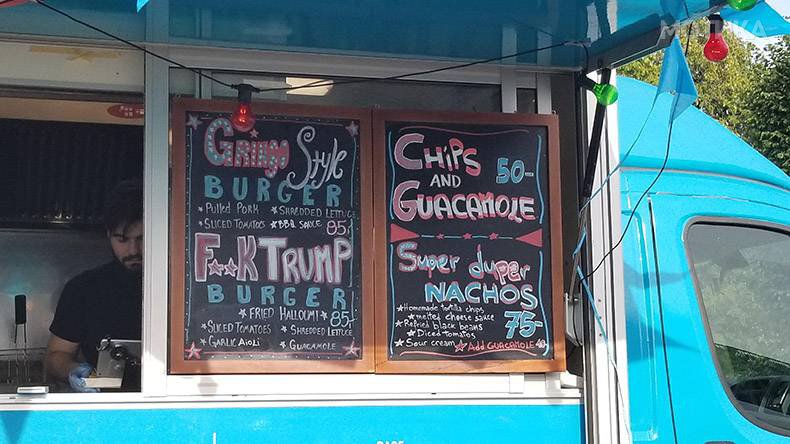 GRINGO Style
BURGER
★ Pulled Pork ★ SHREDDED LETTUCE
★ SLICED TOMATOES ★ BBQ SAUCE 85:-
F★★K TRUMP
BURGER
★ FRIED HALLOUMI ★ 85:-
★ SLICED TOMATOES ★ SHREDDED LETTUCE
★ GARLIC AIOLI ★ GUACAMOLE
CHiPS
AND 50:-
GUACAMOLE
Super duper
NACHOS
★ Homemade tortilla chips
★ melted cheese sauce
★ Refried black beans 75:-
★ Diced tomatoes
★ Sour cream ★ Add GUACAMOLE